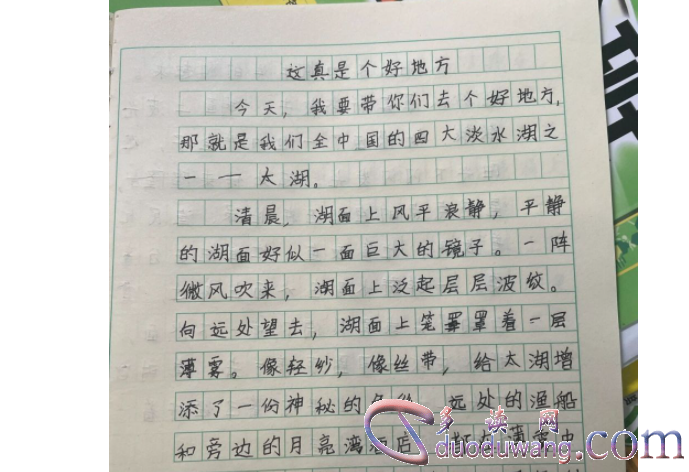 这真是个好地方
今天，我要带你们去个好地方，
那就是我们全中国的四大淡水湖之
一——太湖。
清晨，湖面上风平浪静，平静
的湖面好似一面巨大的镜子。一阵
微风吹来，湖面上泛起层层波纹。
向远处望去，湖面上笼罩罩着一层
薄雾。像轻纱，像丝带，给太湖增
添了一份神秘的色彩。远处的渔船
和旁边的月亮湾酒店
多读网
duoduwang.com